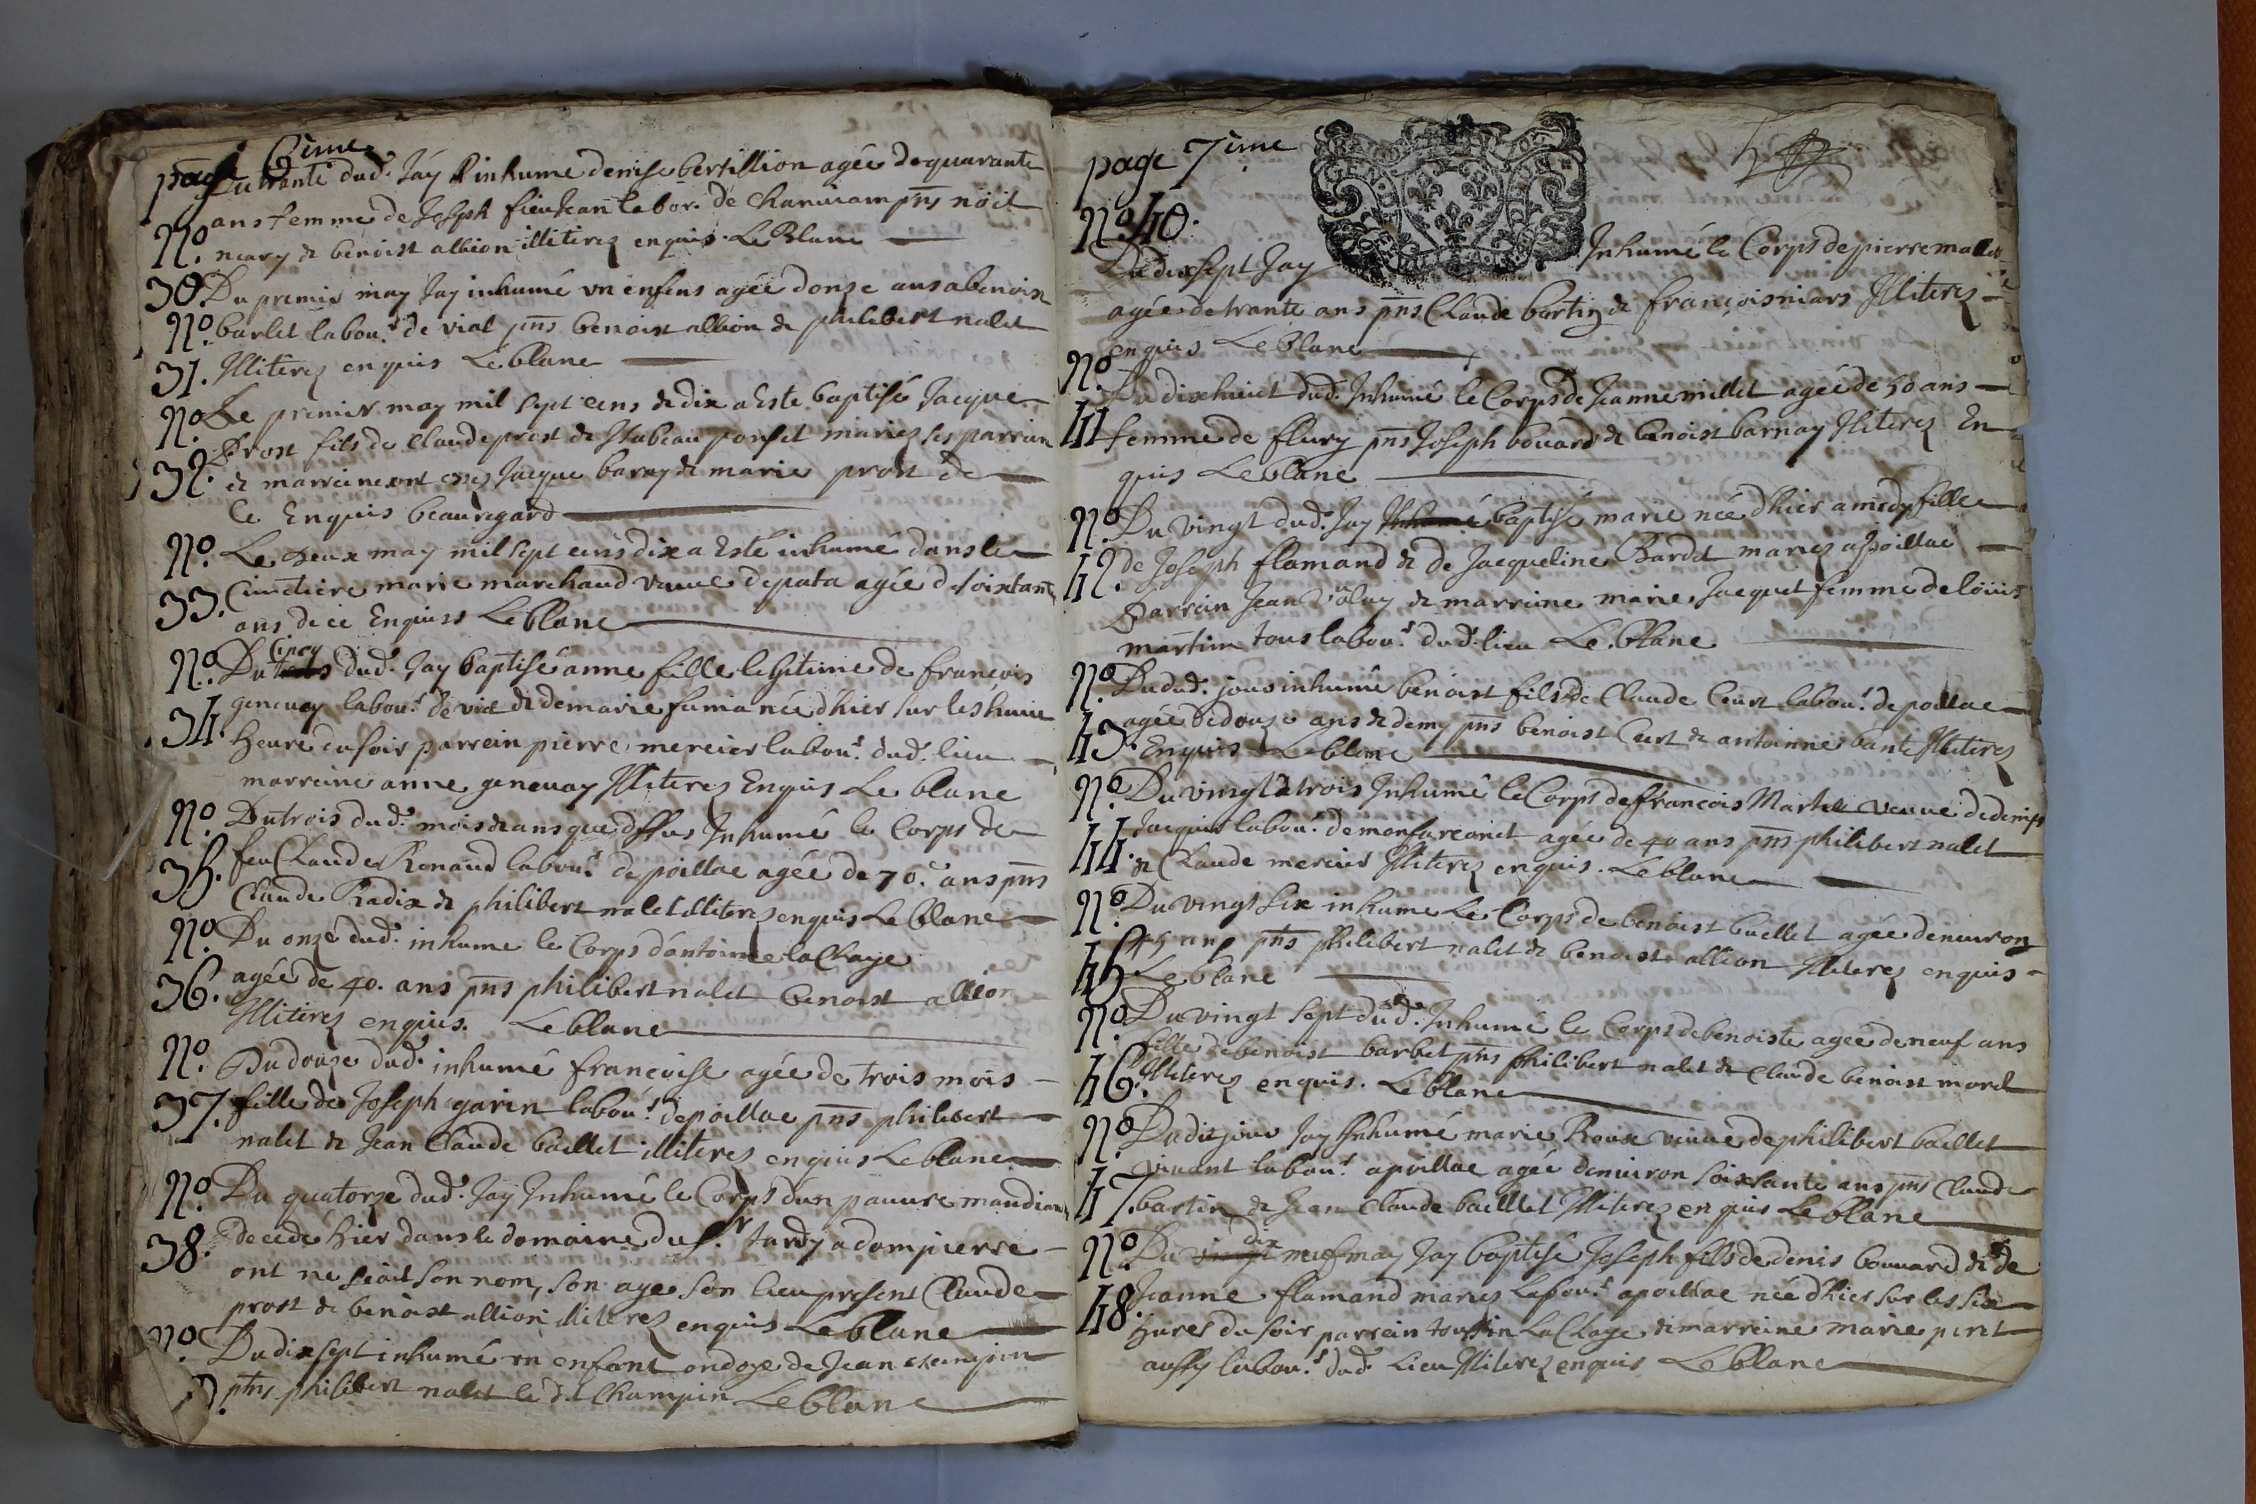 page 6ième
Du trante dud. Jay Rinhumé denise bertillion agée de quarante
ans femme de Joseph fieu Jean labor. de Chaniram pns nöel
N°. neary & benoist allion illiterez enquis. Le Blanc
30. Du premier may Jay inhumé un enfens agée donze ans a benoise
N°. barlet labour. de vial pns. benoist allion & philibert nalet
31. Illiterez enquis Le blanc
N°. Le premier may mil sept cens & dix a Este baptisé Jacque
32. Prost fils de Claude prost & Isabeau ponset mariez ses parrain
& marreine ont esté Jacque baray & marie prost de
ce Enquis beauregard
N°. Le deux may mil sept cens dix a Esté inhumé dans le
33. Cimetiere marie marchand veuve depata agée de soixtante
ans de ce Enquis Le blanc
cinq
N°. Du trois dud. Jay baptisé anne fille legitime de francois
34. genevay labour. de vial & de marie fumanée d'hier sur les huict
heure du soir parrein pierre mercier labour. dud. lieu
marreine anne genevay Illiterez Enquis Le blanc
N°. Du trois dud. mois & ans que dessus Inhumé le Corps de
35. feu Claude Renaud labour. de poillac agée de 70. ans pns
Claude Radix & philibert nalet illiterez enquis Le Blanc
N°. Du onze dud. inhume le Corps dantoinne la Chaye
36. agée de 40. ans pns philibert nalet benoist allion
Illiterez enquis. Le blanc
N°. Du douze dud. inhumé francoise agée de trois mois
37. fille de Joseph garin labour. de poillac pns philibert
nalet & Jean Claude baillet illiterez enquis Le blanc
N°. Du quatorze dud. Jay Inhumé le Corps dun pauvre mandiant
38. decedé hier dans le domaine du Sr. tardy a dompierre
ont ne sçait son nom, son age son lieu present Claude
prost & benoist allion illiterez enquis Le blanc
N°. Du dix sept inhumé un enfant ondoyé de Jean champin
pns philibert nalet led. Champin Le blanc
page 7ième
N° 40.
Du dix sept Jay Inhumé le Corps de pierre mallet
agée de trante ans pns Claude bartin & françois miars Illiterez
enquis Le blanc
N°. Du dix huict dud. Inhumé le Corps de Jeanne millet agée de 50 ans
41 femme de flury pns Joseph bouard & benoist barnay Iliterez En
quis Le blanc
N°. Du vingt dud. Jay Inhumé baptisé marie née d'hier a midy fille
42. de Joseph flamand & de Jacqueline Bardet mariez a poillac
Parrain Jean Volay & marreine marie Jacquet femme de loüis
martin tous labour. dud. lieu Le. blanc
N°. Du dud. jour inhumé benoist fils de Claude Curt labour. de poillac
43. agée de douze ans & demy pns benoist Curt & antoinne bante Illiterez
Enquis Le blanc
N°. Du vingt & trois Inhumé le Corps de francois Martet veuve de denis
44. Jacquis labour. de monfarconet agée de 40 ans pns philibert nalet
& Claude mercier Illiterez enquis. Le blanc
N°. Du vingt six inhumé Le Corps de benoist baillet agée denviron
45 45 ans pns philibert nalet & benoist allion Illiterez enquis
Le blanc
N°. Du vingt sept dud. Inhumé le Corps de benoiste agée de neuf ans
46. fille de benoist barbet pns philibert nalet & Claude benoist morel
Illiterez enquis. Le blanc
N°. Du dit jour Jay Inhumé marie Roux veuve de philibert baillet
47. vivant labour. a poillac agée denviron soixsante ans pns Claude
bartin & Jean Claude baillet Illiterez enquis Le blanc
dix
N°. Du vingt neuf may Jay baptisé Joseph fils de denis bouvard & de
48. Jeanne flamand mariez labour. a poillac née d'hier sur les six
hures du soir parrein toussin La Chaye & marreine marie piret
aussy labour. dud. lieu Illiterez enquis Le blanc